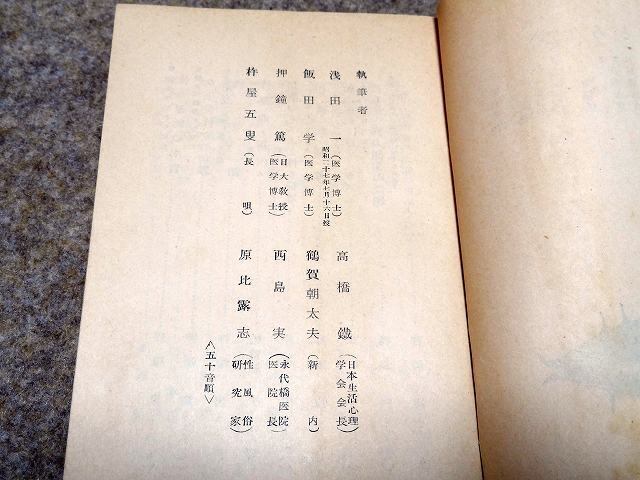 執筆者
浅田一（医学博士）
昭和二十七年七月十六日歿
飯田学（医学博士）
押鐘篤（日大教授
医学博士）
杵屋五叟（長唄）
高橋鐵（日本生活心理
学会会長）
鶴賀朝太夫（新内）
西島実（永代橋医院
医院長）
原比露志（性風俗
研究家）
〈五十音順〉